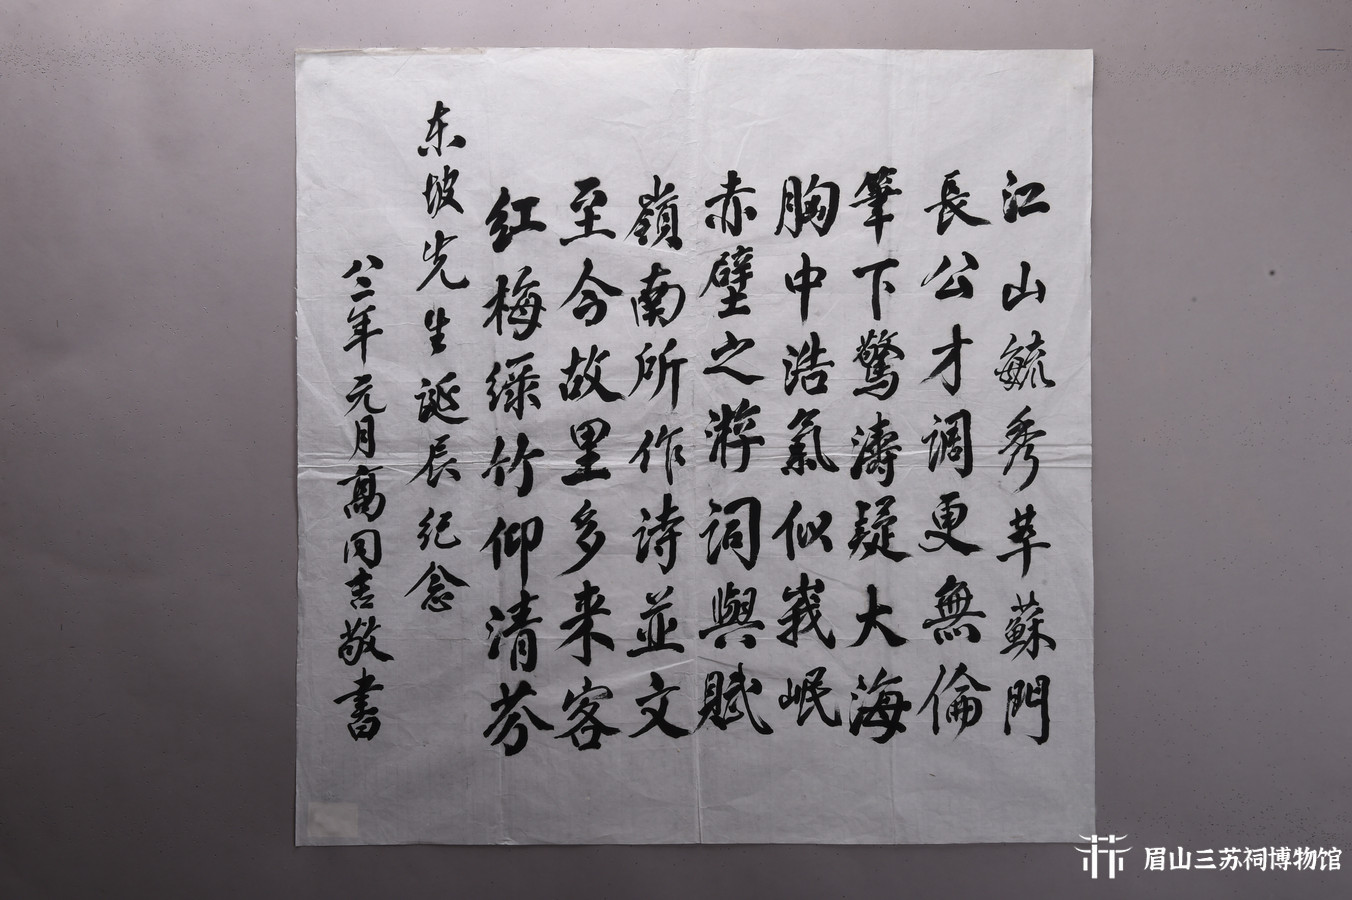 江山毓秀萃蘇門
長公才调更無倫
筆下驚濤疑大海
胸中浩氣似峩岷
赤壁之游詞與賦
嶺南所作诗並文
至今故里多来客
红梅绿竹仰清芬
东坡先生诞辰纪念
八二年元月萬同吉敬書
眉山三苏祠博物馆